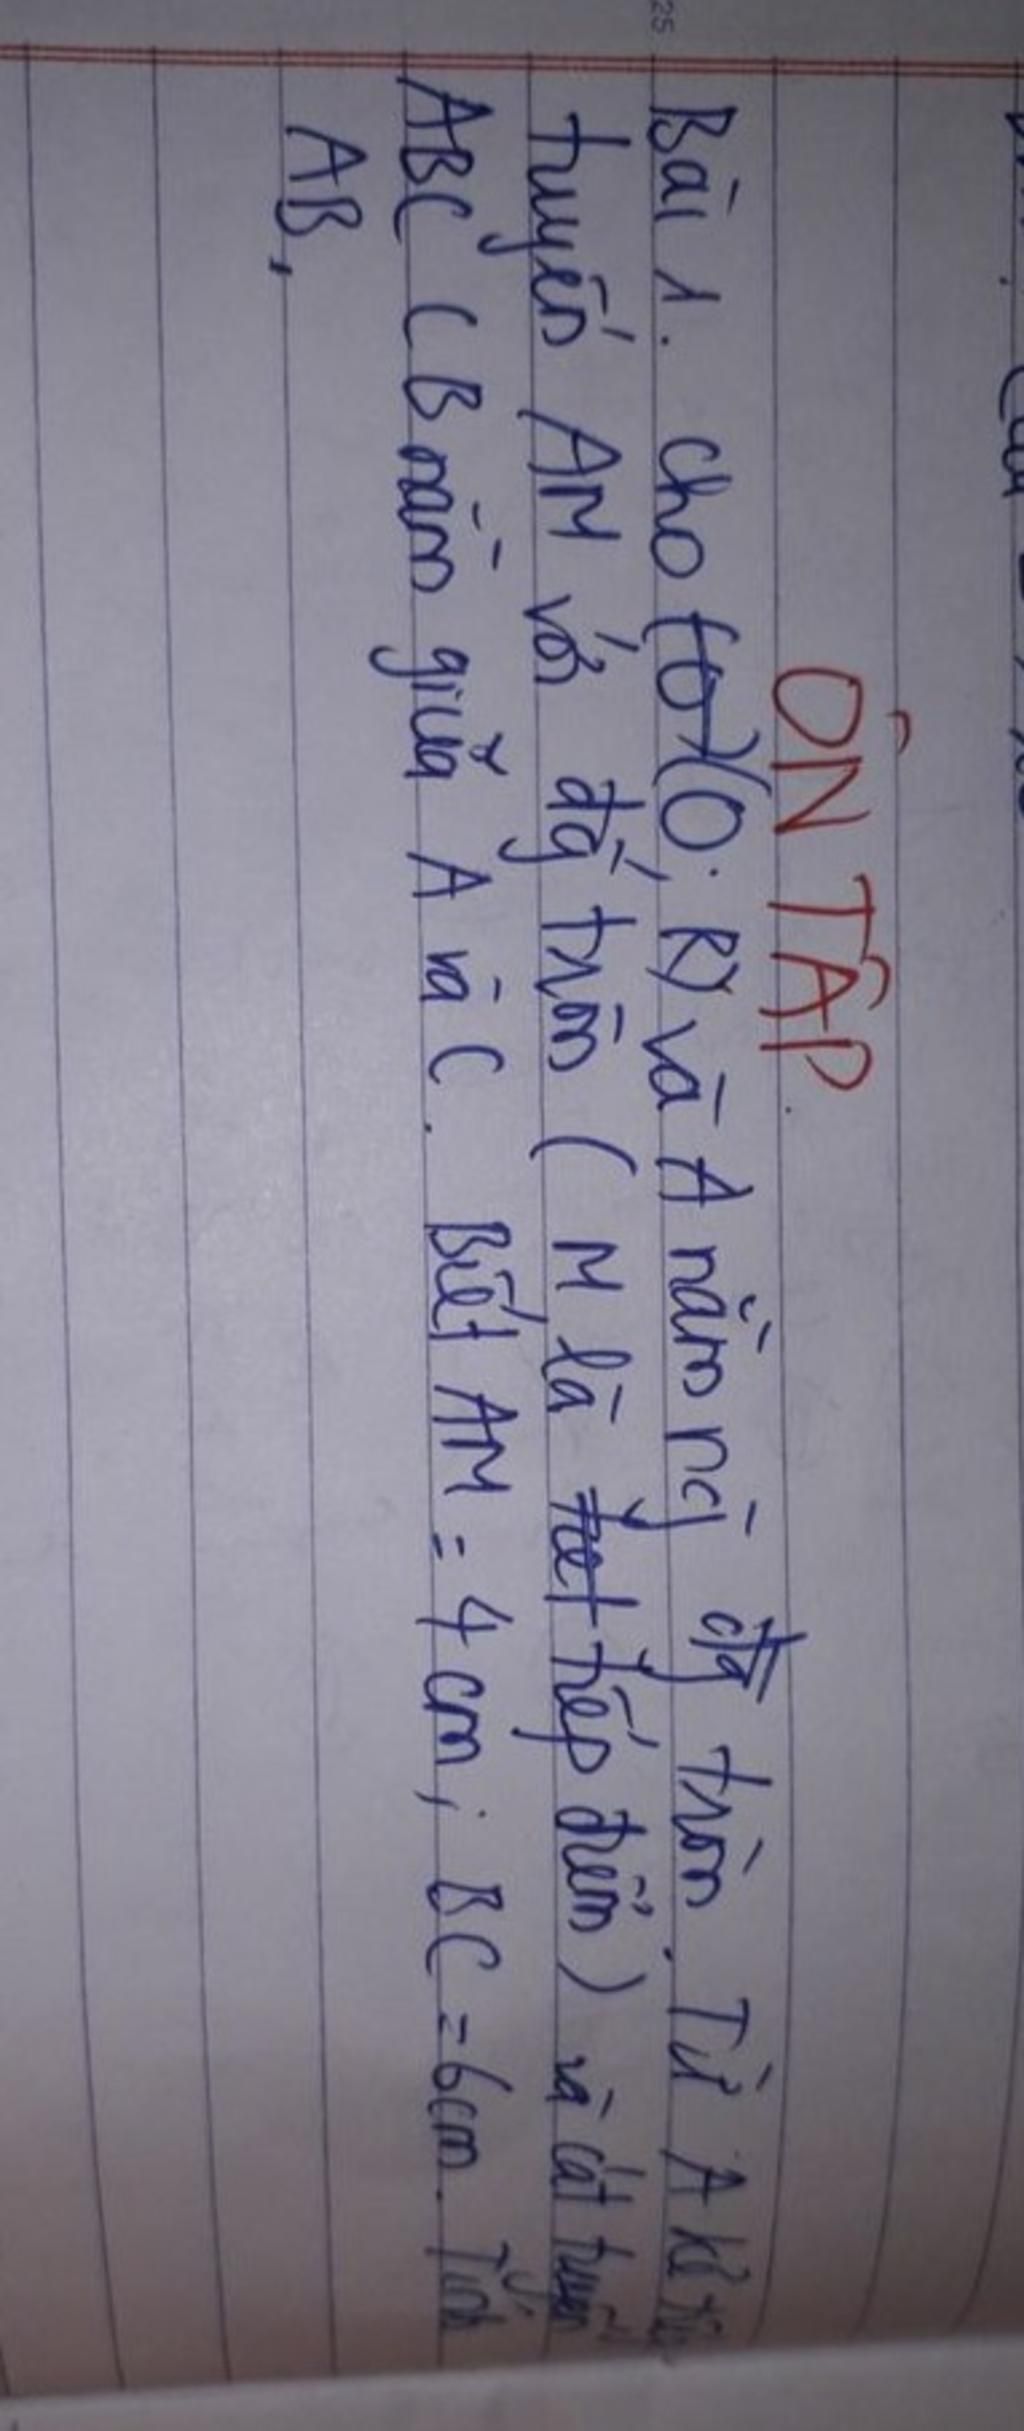 ÔN TẬP
Bài 1. Cho (O) (O; R) và A nằm ng đg tròn. Từ A kẻ tiếp
tuyến AM với đg tròn (M là tiết tiếp điểm) và cát tuyến
ABC (B nằm giữa A và C. Biết AM = 4 cm; BC = 6cm. Tính
AB,